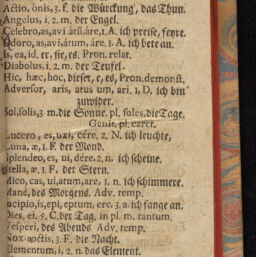 Actio, ônis, 3. f. die Würckung, das Thun.
Angelus, i. 2. m. der Engel.
Celebro, as, avi âtū, âre, 1. A. ich preise, feyre.
Adoro, as, avi, âtum, âre, 1. A. ich bete an.
Is, ea, id, er, sie, es, Pron. relat.
Diabolus, i. 2. m. der Teufel.
Hic, hæc, hoc, dieser, e, es, Pron. demonst.
Adversor, aris, atus um, ari, 1. D. ich bin
zuwider.
Sol, solis, 3. m. die Sonne. pl. soles, die Tage,
Genit. pl. caret.
Lucero, es, uxi, cére. 2. N. ich leuchte,
Luna, æ, 1. F. der Mond.
Splendeo, es, ui, dére. 2. n. ich scheine.
Stella, æ. 1. F. der Stern.
Mico, cas, ui, atum, are, 1. n. ich schimmere.
Mane, des Morgens. Adv. temp,
Incipio, is, epi, eptum, ere. 3. a. ich fange an.
Dies, ei, 5. C. der Tag, in pl. m. tantum,
Vesperi, des Abends Adv. temp,
Nox noctis, 3. F. die Nacht.
Elementum, i, 2. n. das Element.